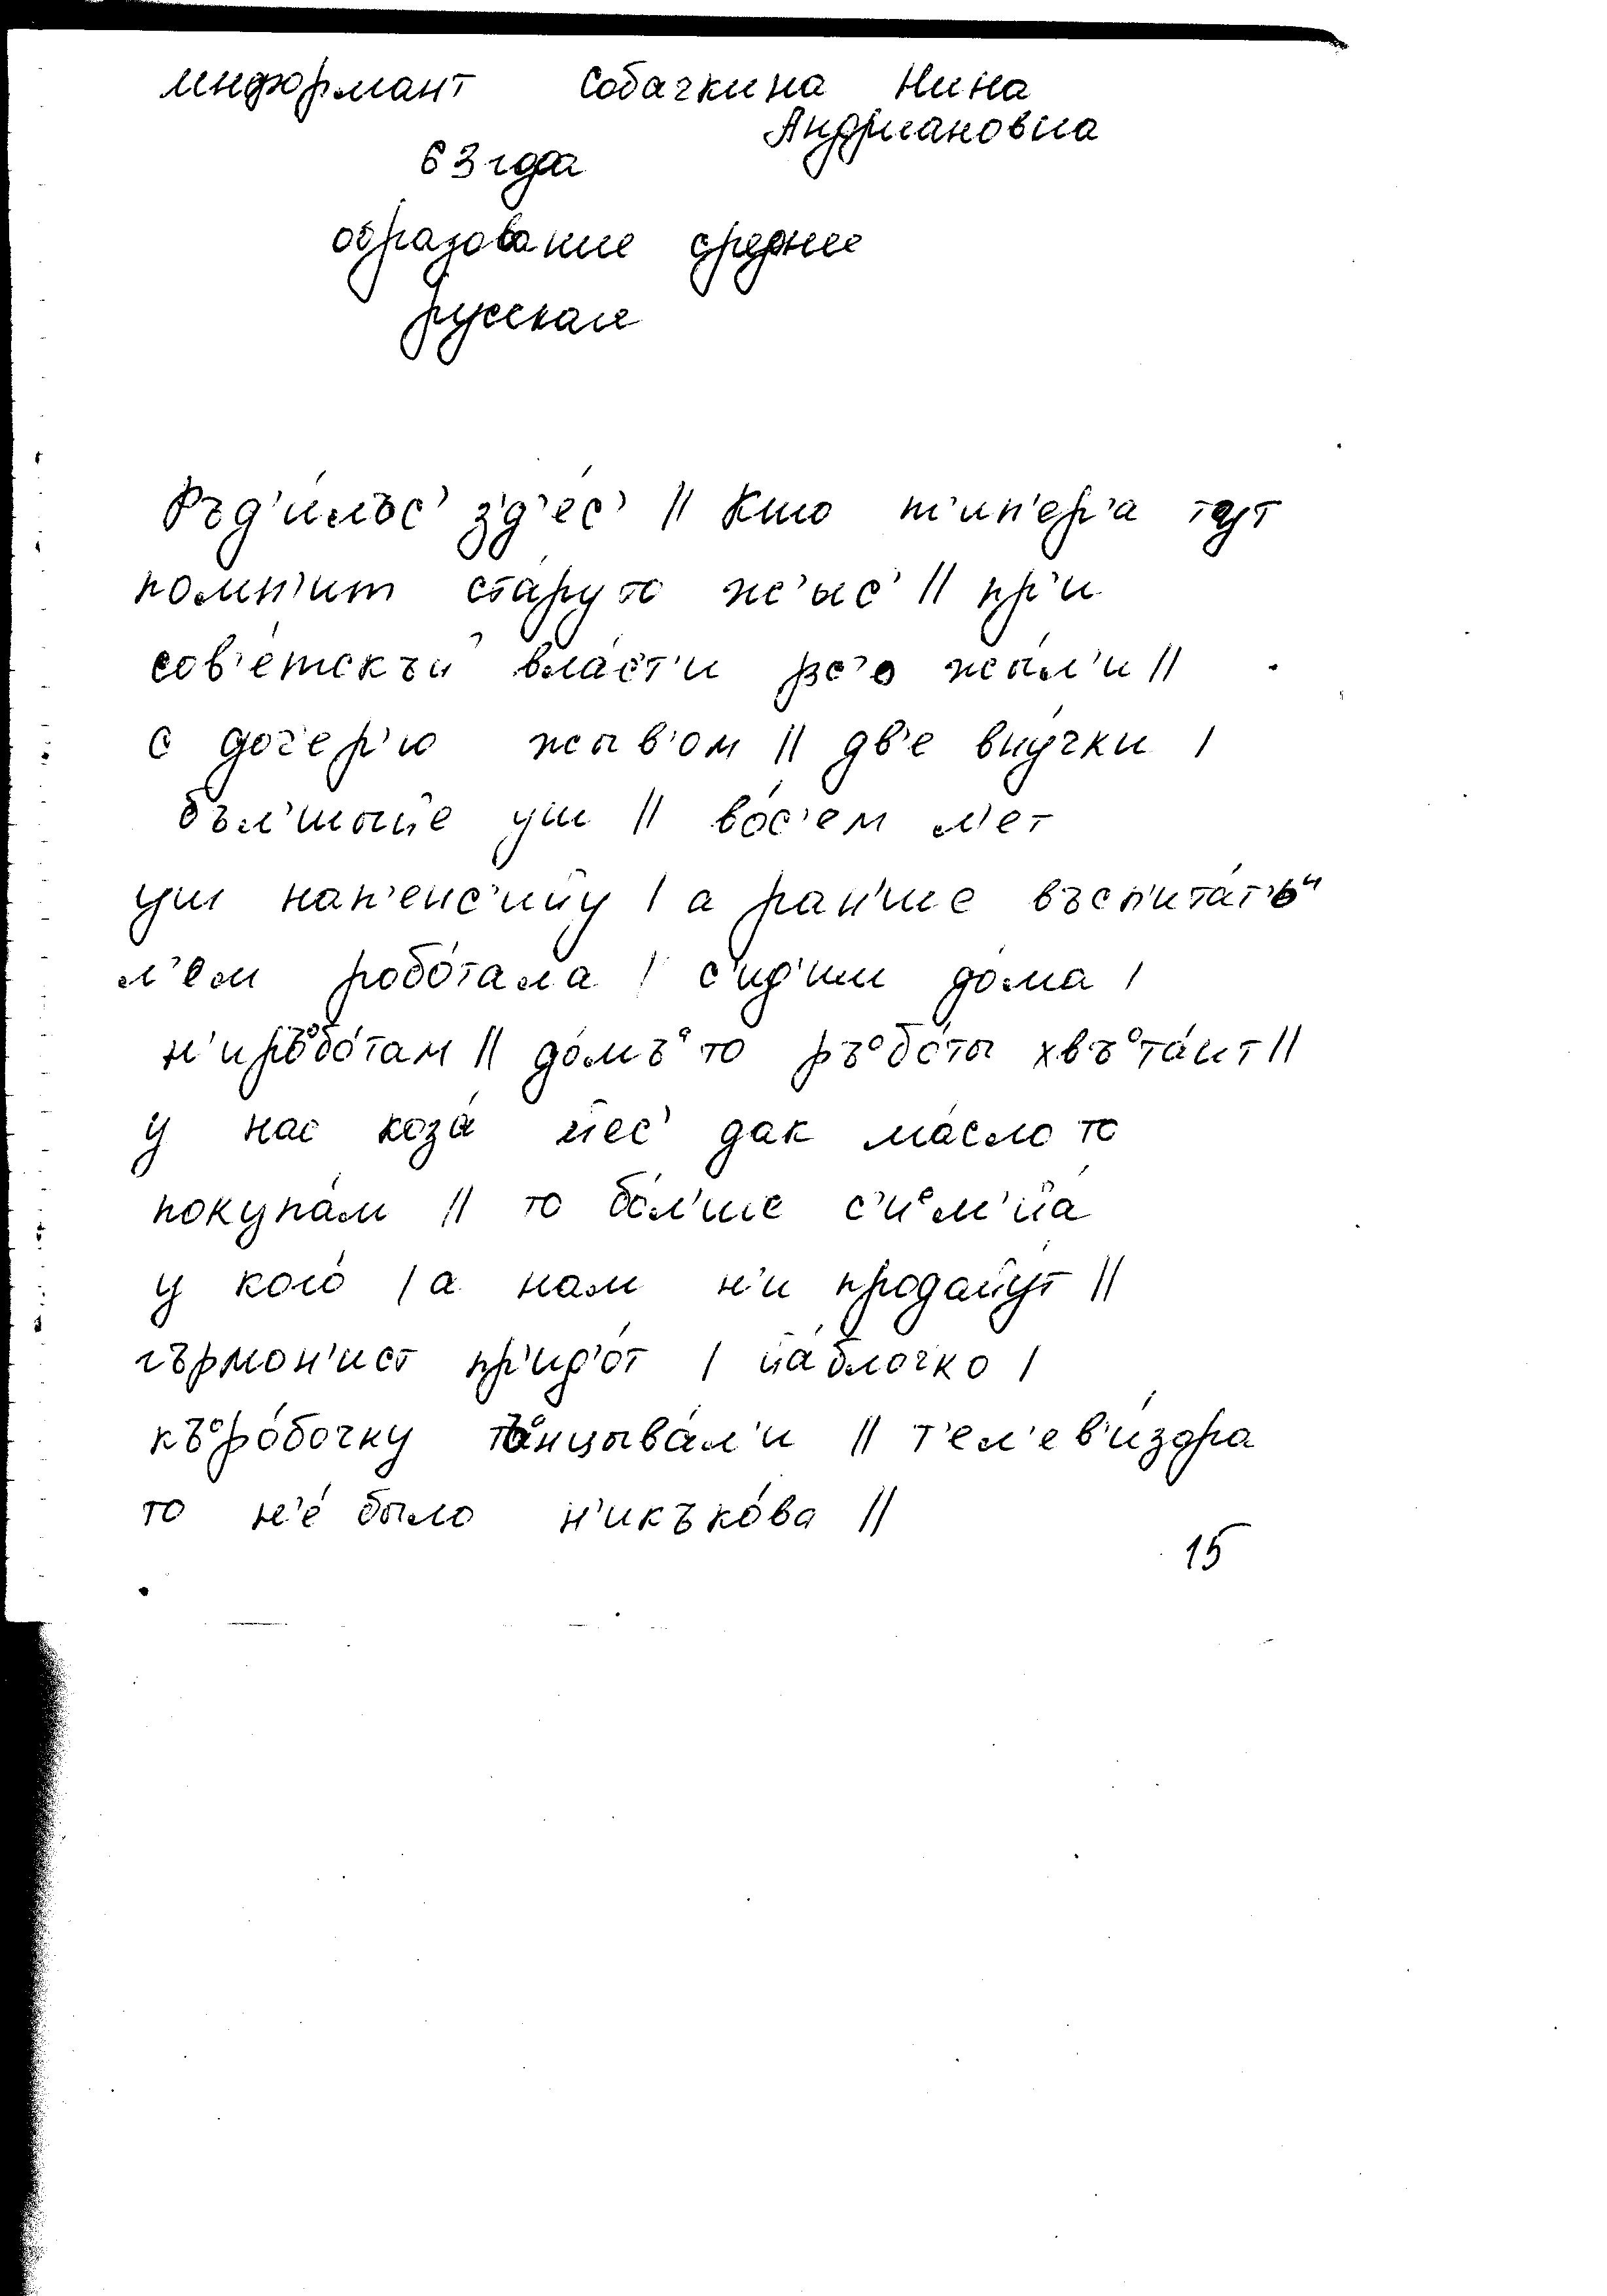 информант Собачкина Нина
Андриановна
63 года
образование среднее
русская
Ръд'и́лъс' з'д'е́с' || Кто т'ип'ер'а тут
помн'ит ста́ру то ж'ыс' || пр'и
сов'е́тскъй вла́ст'и жы́л'и ||
с доч'ер'ю жыв'ом || дв'е вну́чки |
бъл'шыйе уш || во́с'ем л'ет
уш нап'енс'ийу | а ран'ше въсп'ита́т'ьи
л'ем робо́тала | с'ид'им до́ма |
н'иръᵒбо́там || до́мъᵒ то ръᵒбо́ты хвъᵒта́ит ||
у нас коза́ йес' дак ма́сло то
покупа́м || то бо́л'ше с'иᵉм'йа́
у кого́ | а нам н'и продайу́т ||
гърмон'ист пр'ид'о́т | йа́блочко |
къᵒро́бочку тъᵒнцыва́л'и || т'ел'ев'и́здра
то н'е́ было н'икъко́ва ||
15